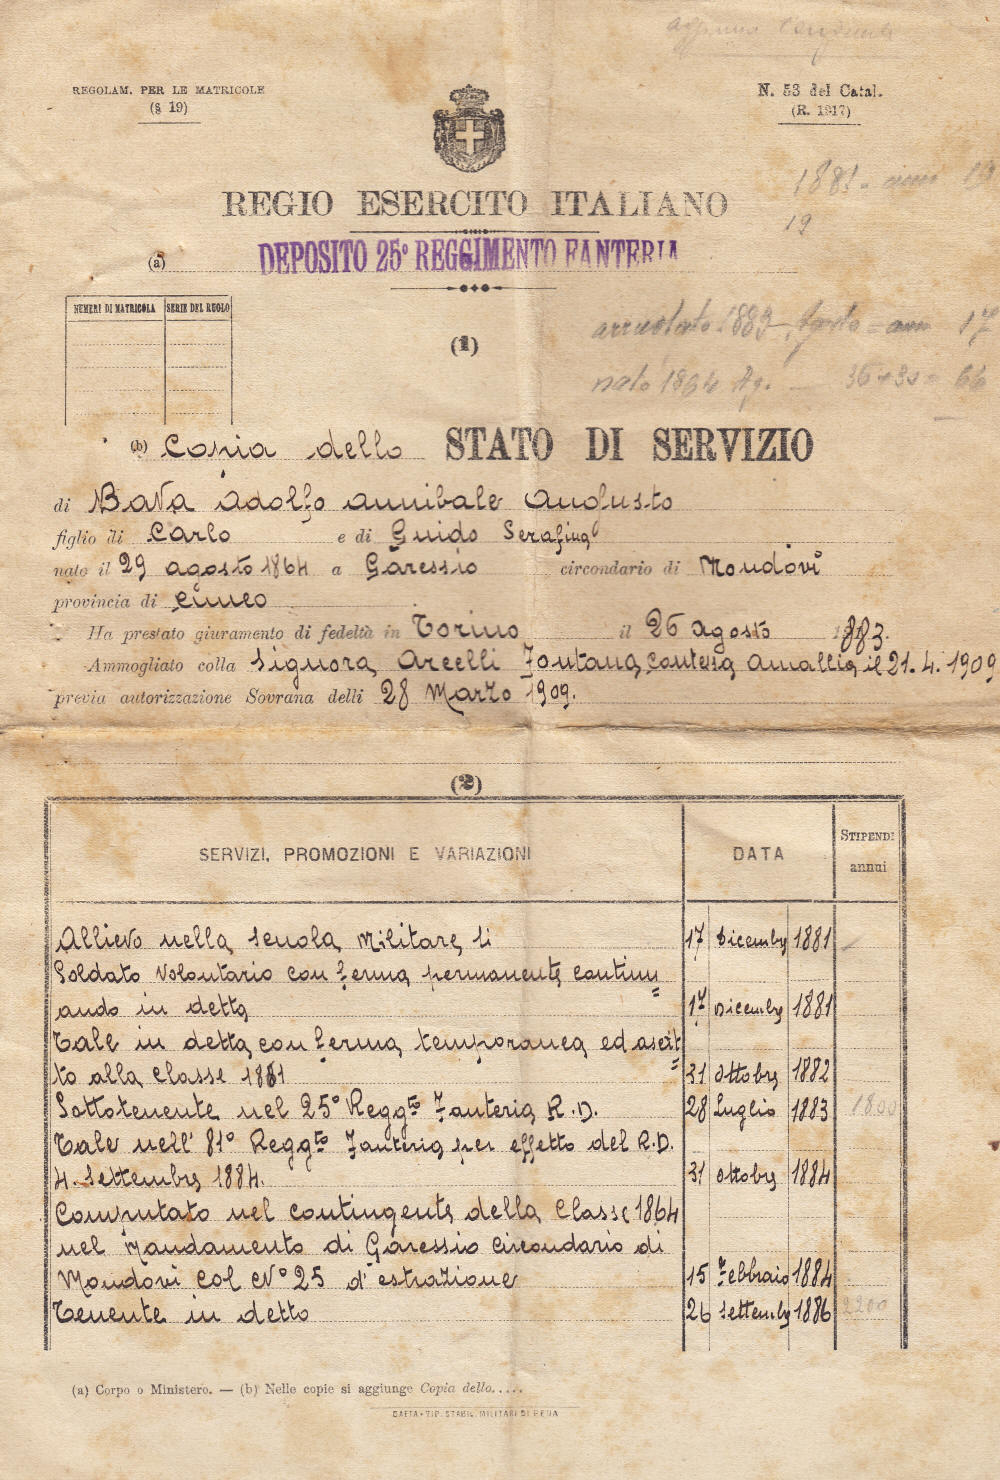 REGOLAM. PER LE MATRICOLE
(§ 19)
N. 53 del Catal.
(R. 1917)
1881 - anni
19
REGIO ESERCITO ITALIANO
(a) DEPOSITO 25° REGGIMENTO FANTERIA
NUMERI DI MATRICOLA SERIE DEL RUOLO
(1)
arruolato 1883 - = anni 17
nato 1864 Ag. — 36+30= 66
(b) Copia dello STATO DI SERVIZIO
di Bava Adolfo Annibale Augusto
figlio di Carlo e di Guido Serafina
nato il 29 agosto 1864 a Garessio circondario di Mondovì
provincia di Cuneo
Ha prestato giuramento di fedeltà in Torino il 26 agosto 1883.
Ammogliato colla Signora Arcelli Fontana, contessa Amallia, il 21. 4. 1909
previa autorizzazione Sovrana delli 28 Marzo 1909.
(2)
SERVIZI, PROMOZIONI E VARIAZIONI DATA STIPENDI annui
Allievo nella Scuola Militare, li 17 Dicembre 1881
Soldato volontario con ferma permanente continu=
ando in detta 17 Dicembre 1881
Tale in detta, con ferma temporanea ed ascrit=
to alla Classe 1861 31 Ottobre 1882
Sottotenente nel 25° Regg.to Fanteria R.D. 28 Luglio 1883 1800
Tale nell' 81° Regg.to Fanteria per effetto del R.D.
4. Settembre 1884. 31 Ottobre 1884
Computato nel contingente della Classe 1864
nel Mandamento di Garessio Circondario di
Mondovì col N° 25 d'estrazione 15 Febbraio 1884
Tenente in detto 26 Settembre 1886 2200
(a) Corpo o Ministero. — (b) Nelle copie si aggiunge Copia dello.....
GAETA - TIP. STABIL. MILITARI DI PENA